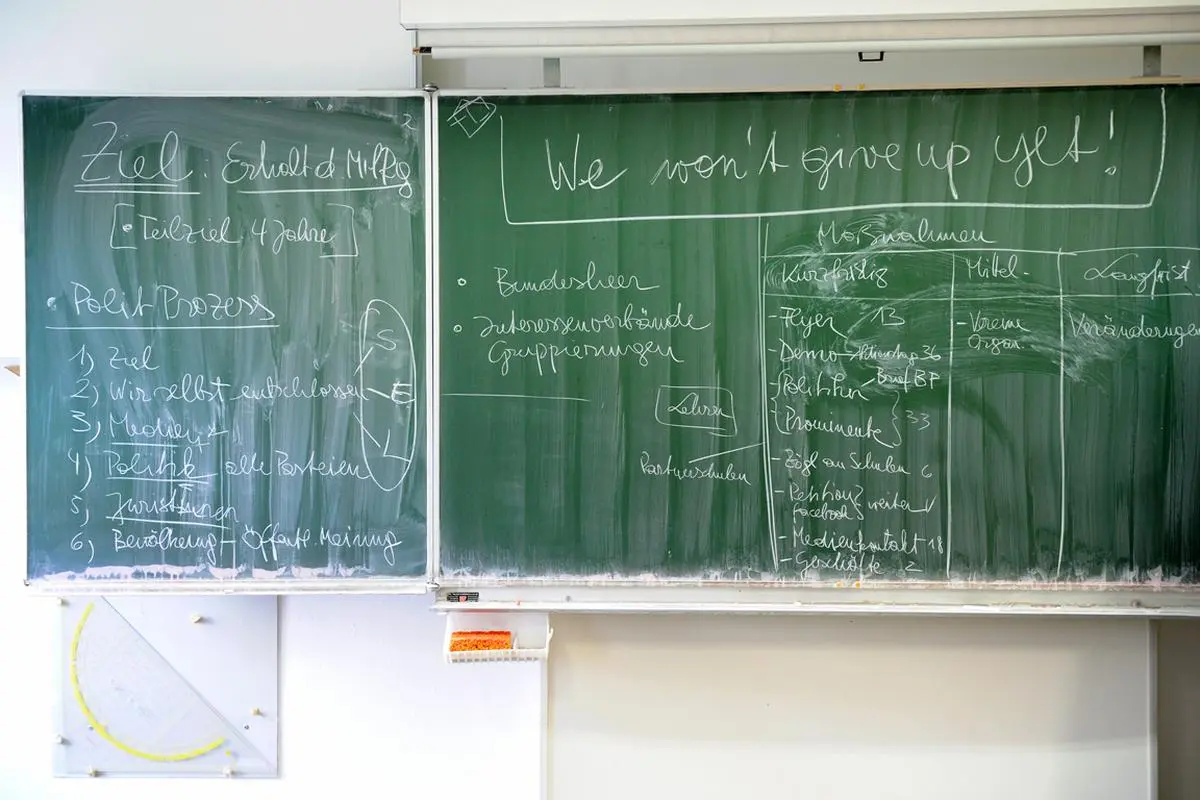 2
Ziel: Erhalt d. MilRg
[• Teilziel 4 Jahre]
• Polit Prozess
1) Ziel
2) Wir selbst entschlossen
3) Medien
4) Politik – alle Parteien
5)
6) Bevölkerung – Öffentl. Meinung
S
E
L
We won't give up yet!
• Bundesheer
• Interessenverbände
Gruppierungen
Lehrer
Partnerschulen
Maßnahmen
Kurzfristig
- Flyer 13
- Demo – Aktionstag 36
Politiker – Brief BP
Prominente } 33
- Zögl an Schulen 6
- Petition
facebook } weiter
- Medienkontakt 18
- Geschäfte 2
Mittel-
- Vereine
Organ.
Langfrist
Veränderungen